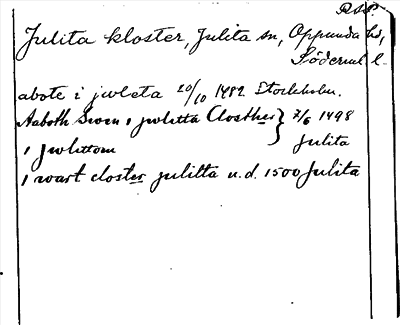 Julita kloster, Julita sn, Oppunda hd,
Söderml l.
abote i jwleta 20/10 1482 Stockholm.
Aaboth Swen i jwlitta Closther } 7/6 1498
i jwlittom Julita
i wart closter julitta u.d. 1500 Julita